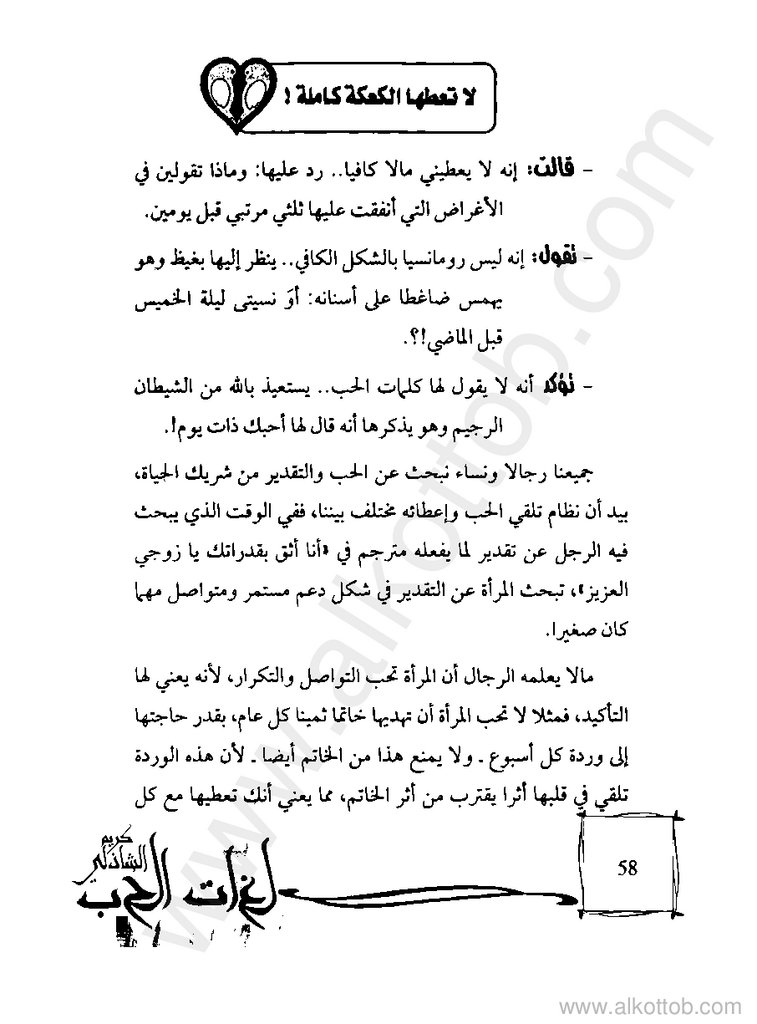 لا تعطها الكعكة كاملة !
- قالت: إنه لا يعطيني مالا كافيا.. رد عليها: وماذا تقولين في
الأغراض التي أنفقت عليها ثلثي مرتبي قبل يومين.
- تقول: إنه ليس رومانسيا بالشكل الكافي.. ينظر إليها بغيظ وهو
يهمس ضاغطا على أسنانه: أوَ نسيتى ليلة الخميس
قبل الماضي!؟.
- تؤكد أنه لا يقول لها كلمات الحب.. يستعيذ بالله من الشيطان
الرجيم وهو يذكرها أنه قال لها أحبك ذات يوم!.
جميعنا رجالا ونساء نبحث عن الحب والتقدير من شريك الحياة،
بيد أن نظام تلقي الحب وإعطائه مختلف بيننا، ففي الوقت الذي يبحث
فيه الرجل عن تقدير لما يفعله مترجم في «أنا أثق بقدراتك يا زوجي
العزيز»، تبحث المرأة عن التقدير في شكل دعم مستمر ومتواصل مهما
كان صغيرا.
مالا يعلمه الرجال أن المرأة تحب التواصل والتكرار، لأنه يعني لها
التأكيد، فمثلا لا تحب المرأة أن تهديها خاتما ثمينا كل عام، بقدر حاجتها
إلى وردة كل أسبوع ـ ولا يمنع هذا من الخاتم أيضا ـ لأن هذه الوردة
تلقي في قلبها أثرا يقترب من أثر الخاتم، مما يعني أنك تعطيها مع كل
58
كريم
الشاذلي
لغات الحب
www.alkottob.com
www.alkottob.com